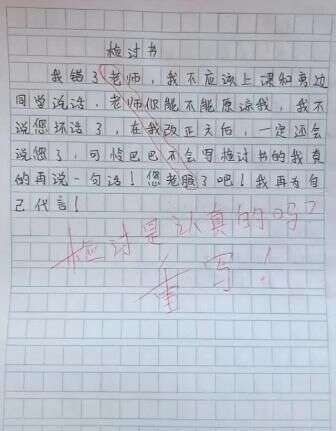 检过书
我错了老师，我不应该上课和旁边
同学说话，老师你能不能原谅我，我不
说您坏话了，在我改正天后，一定还会
说您了，可怜巴巴不会写检讨书的我真
的再说一句话！您老服了吧！我再为自
己代言！
检讨是认真的吗？
重写！